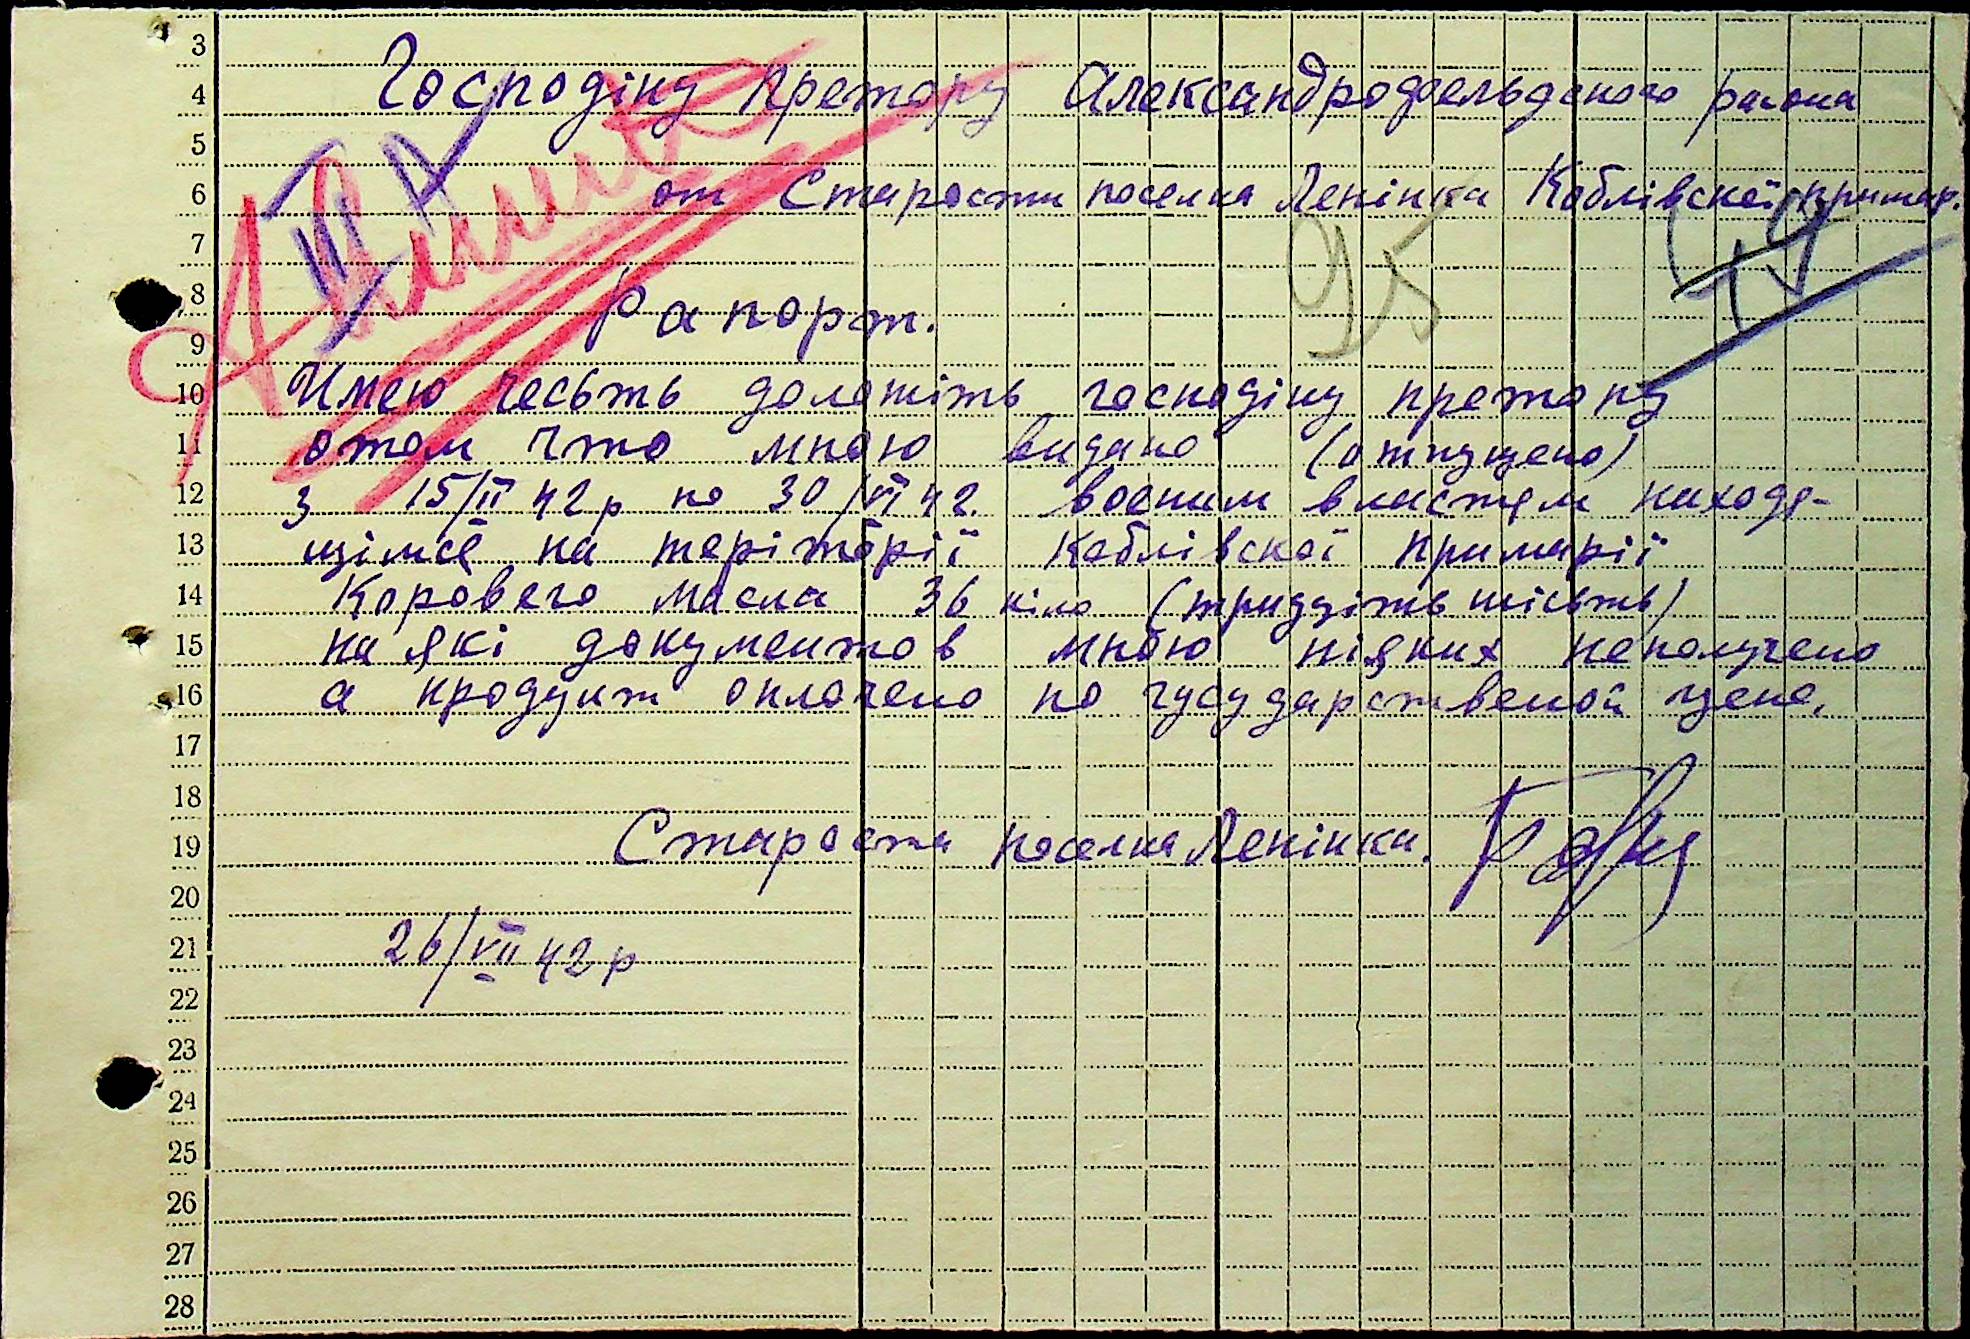 3
Господіну Претору Александродфельдского раіона
4
5
от Старости поселка Ленінка Коблівскої примар.
6
7
95
19
8
Рапорт.
9
Имею чесьть доложіть господіну претору
10
отом что мною видано (отпущено)
11
з 15/II 42 р по 30/VI 42. воєним властям находя-
12
щімся на теріторії Коблівскої Примарії
13
Коровего масла 36 кіло (тридціть шісьть)
14
на які документов мною ніяких неполучено
15
а продукт оплочено по гусударственой цене.
16
17
18
Староста поселка Ленінки.
19
20
26/VII 42 р
21
22
23
24
25
26
27
28